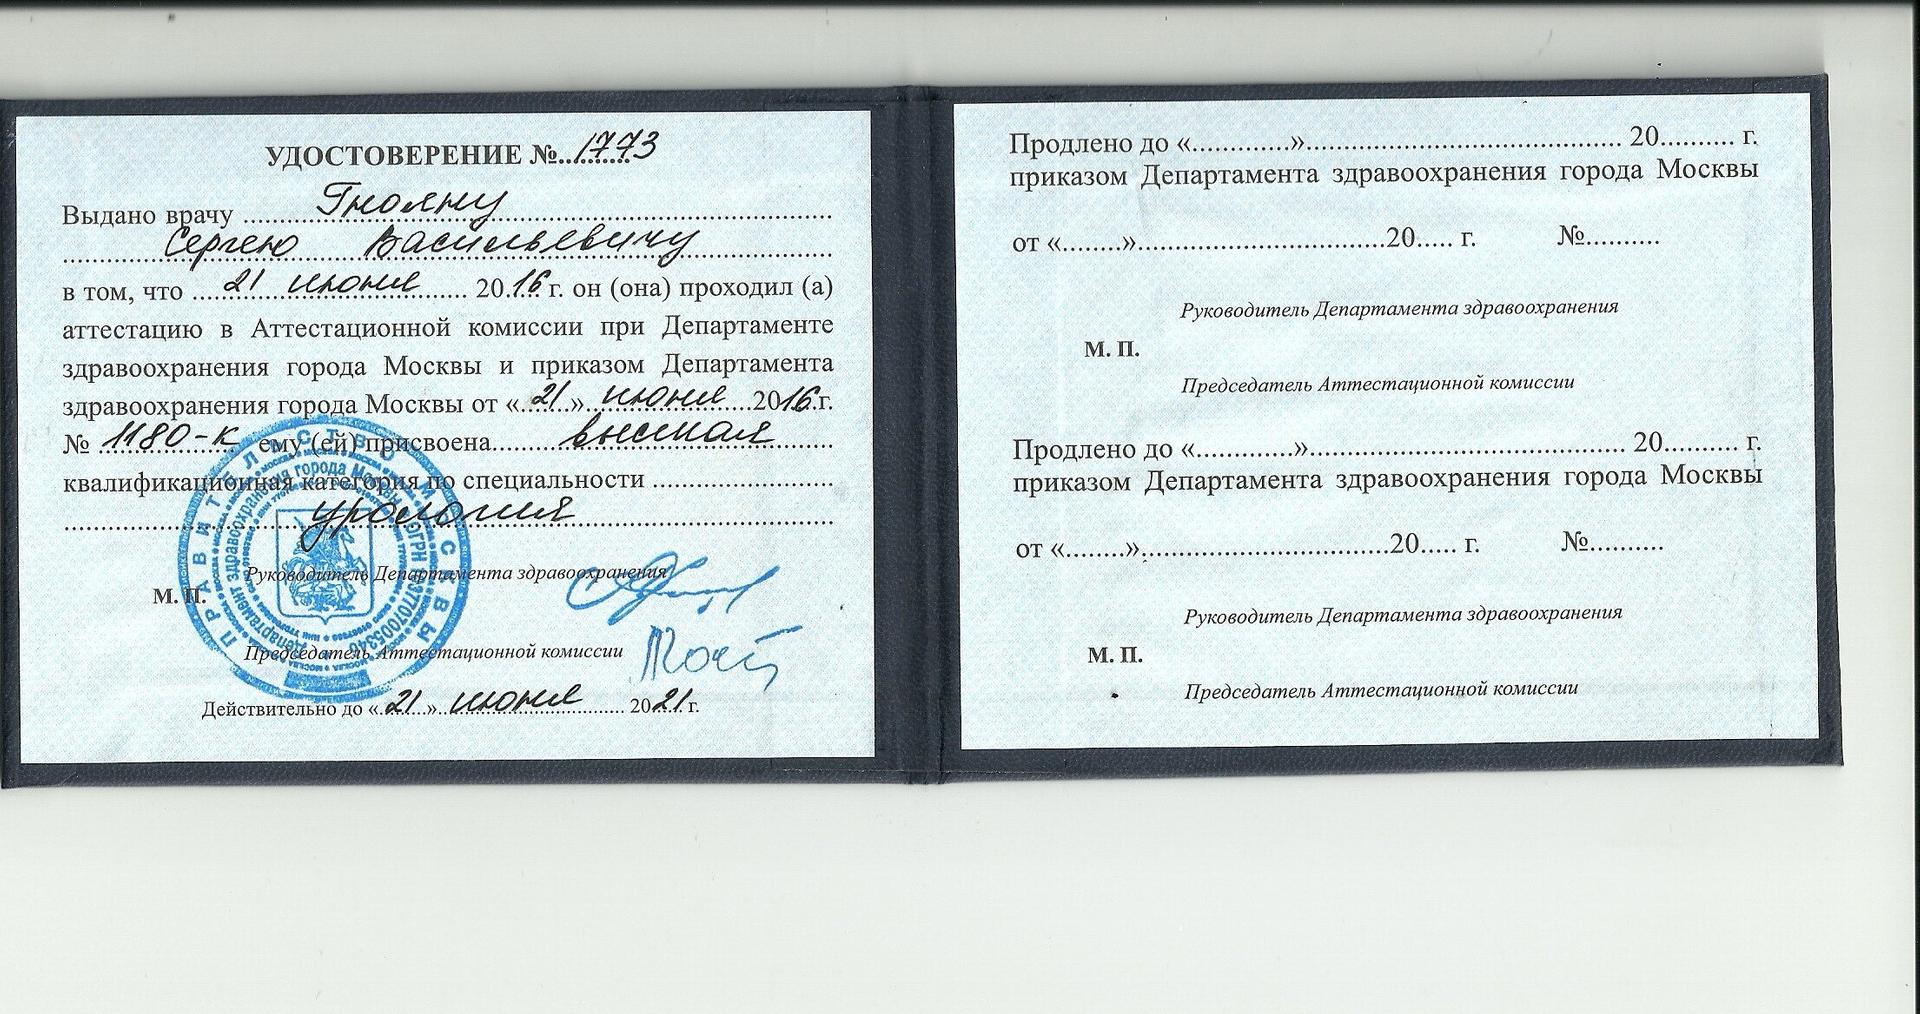 УДОСТОВЕРЕНИЕ №..1773
Выдано врачу Гнояну
Сергею Васильевичу
в том, что 21 июня 2016 г. он (она) проходил (а)
аттестацию в Аттестационной комиссии при Департаменте
здравоохранения города Москвы и приказом Департамента
здравоохранения города Москвы от «21» июня 2016 г.
№ 1180-к ему (ей) присвоена высшая
квалификационная категория по специальности
урология
ПРАВИТЕЛЬСТВО МОСКВЫ
Департамент здравоохранения города Москвы
Руководитель Департамента здравоохранения
М. П.
Председатель Аттестационной комиссии
Действительно до «21» июня 2021 г.
Продлено до «............»............................................. 20.......... г.
приказом Департамента здравоохранения города Москвы
от «........»...................................20..... г. №..........
Руководитель Департамента здравоохранения
М. П.
Председатель Аттестационной комиссии
Продлено до «.............»............................................. 20.......... г.
приказом Департамента здравоохранения города Москвы
от «........»...................................20..... г. №..........
Руководитель Департамента здравоохранения
М. П.
Председатель Аттестационной комиссии